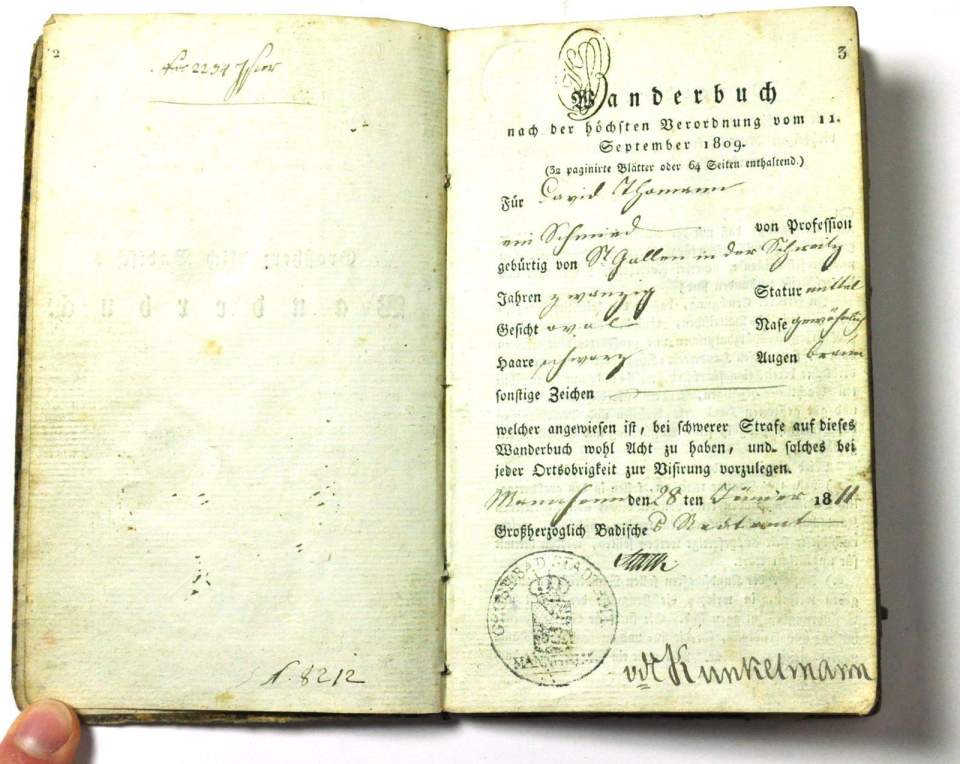 2
2234
N. 8212
3
Wanderbuch
nach der höchsten Verordnung vom 11.
September 1809.
(32 paginirte Blätter oder 64 Seiten enthaltend.)
Für David Thomann
ein Schmied von Profession
gebürtig von St Gallen in der Schweitz
Jahren zwanzig Statur mittel
Gesicht oval Nase gewöhnlich
Haare schwarz Augen braun
sonstige Zeichen
welcher angewiesen ist, bei schwerer Strafe auf dieses
Wanderbuch wohl Acht zu haben, und solches bei
jeder Ortsobrigkeit zur Visirung vorzulegen.
Mannheim den 28 ten 1811
Großherzoglich Badisches Stadtamt
GROSHE BAD STADTAMT
MANNHEIM
vdt Kunkelmann